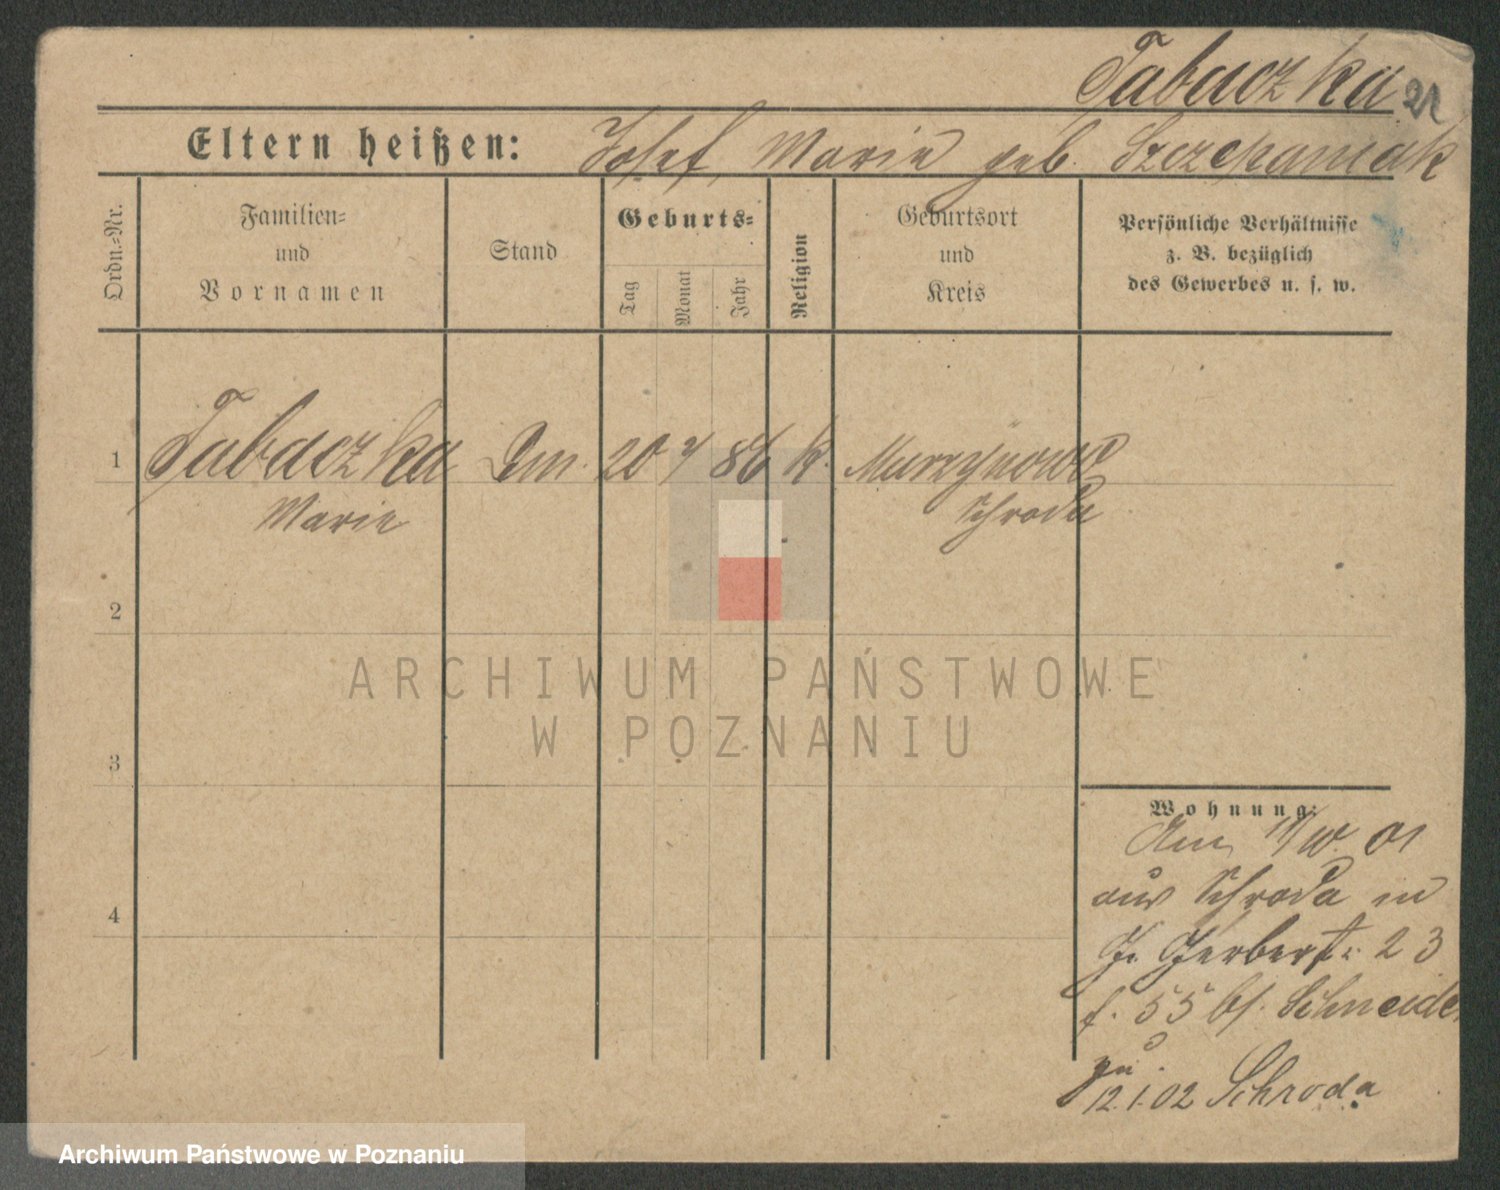 Tabaczka 21
Eltern heißen: Josef, Marie geb. Szczepaniak
Ordn.-Nr.
Familien-
und
Vornamen
Stand
Geburts-
Tag
Monat
Jahr
Religion
Geburtsort
und
Kreis
Persönliche Verhältnisse
z. B. bezüglich
des Gewerbes u. s. w.
1 Tabaczka 20 7 86 k.
Marie Schroda
2
ARCHIWUM PAŃSTWOWE
W POZNANIU
3
Wohnung:
01
aus Schroda in
23
55 bf. Schneider
4
12.1.02 Schroda
Archiwum Państwowe w Poznaniu